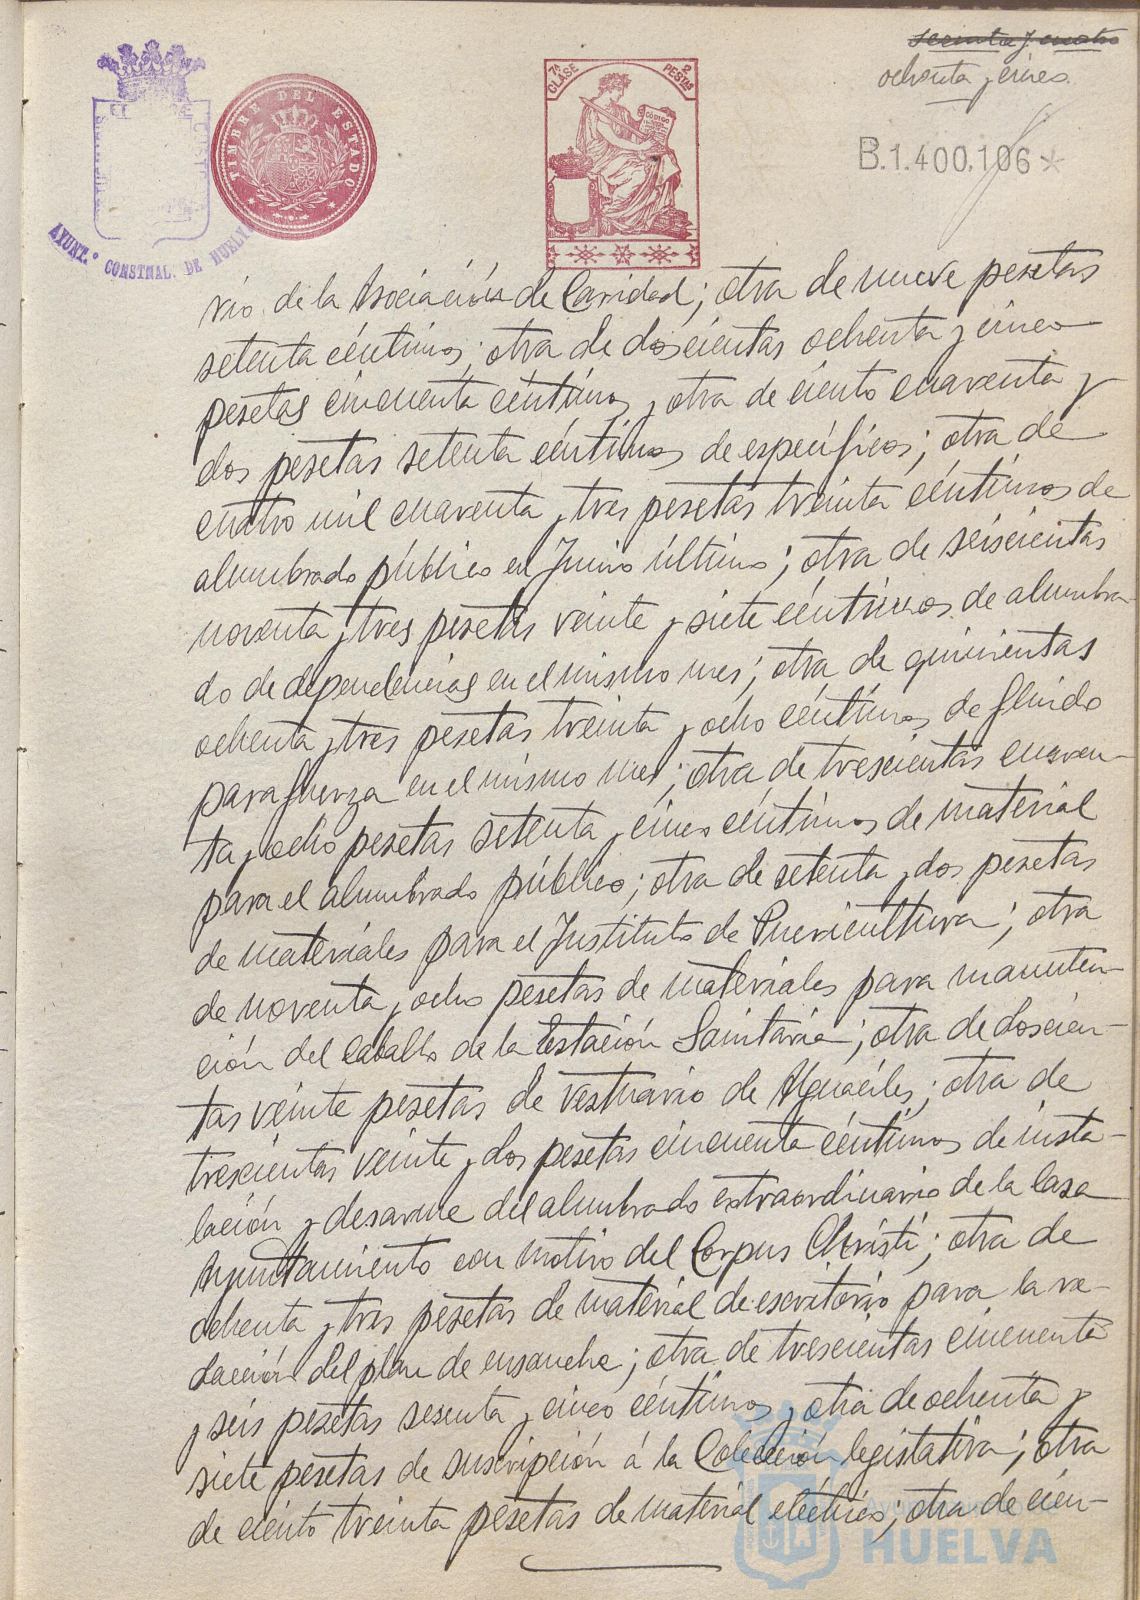 ochenta y cinco
TIMBRE DEL ESTADO
7ª CLASE
2 PESTAS
CÓDIGO
B.1.400.106*
AYUNT.º CONSTNAL. DE HUELVA
rio de la Asociación de Caridad; otra de nueve pesetas
setenta céntimos; otra de doscientas ochenta y cinco
pesetas cincuenta céntimos y otra de ciento cuarenta y
dos pesetas setenta céntimos de específicos; otra de
cuatro mil cuarenta y tres pesetas treinta céntimos de
alumbrado público en Junio último; otra de seiscientas
noventa y tres pesetas veinte y siete céntimos de alumbra-
do de dependencias en el mismo mes; otra de quinientas
ochenta y tres pesetas treinta y ocho céntimos de fluido
para fuerza en el mismo mes; otra de trescientas cuaren-
ta y ocho pesetas setenta y cinco céntimos de material
para el alumbrado público; otra de setenta y dos pesetas
de materiales para el Instituto de Puericultura; otra
de noventa y ocho pesetas de materiales para manuten-
ción del caballo de la Estación Sanitaria; otra de doscien-
tas veinte pesetas de vestuario de Alguaciles; otra de
trescientas veinte y dos pesetas cincuenta céntimos de insta-
lación y desarme del alumbrado extraordinario de la Casa
Ayuntamiento con motivo del Corpus Christi; otra de
ochenta y tres pesetas de material de escritorio para la re-
dacción del plan de ensanche; otra de trescientas cincuenta
y seis pesetas sesenta y cinco céntimos y otra de ochenta y
siete pesetas de suscripción á la Colección legislativa; otra
de ciento treinta pesetas de material eléctrico; otra de cien-
HUELVA